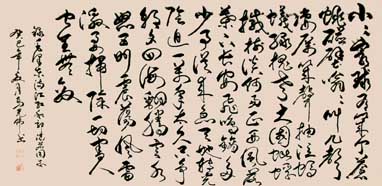 小小寰球有几个苍
蝇碰壁嗡嗡叫几声
凄厉几声抽泣蚂
蚁缘槐夸大国蚍蜉
撼树谈何易正西风落
叶下长安飞鸣镝多
少事从来急天地转光
阴迫一万年太久只争
朝夕四海翻腾云水
怒五洲震荡风雷
激要扫除一切害人
虫全无敌
满江红和郭沫若同志
癸巳年五月